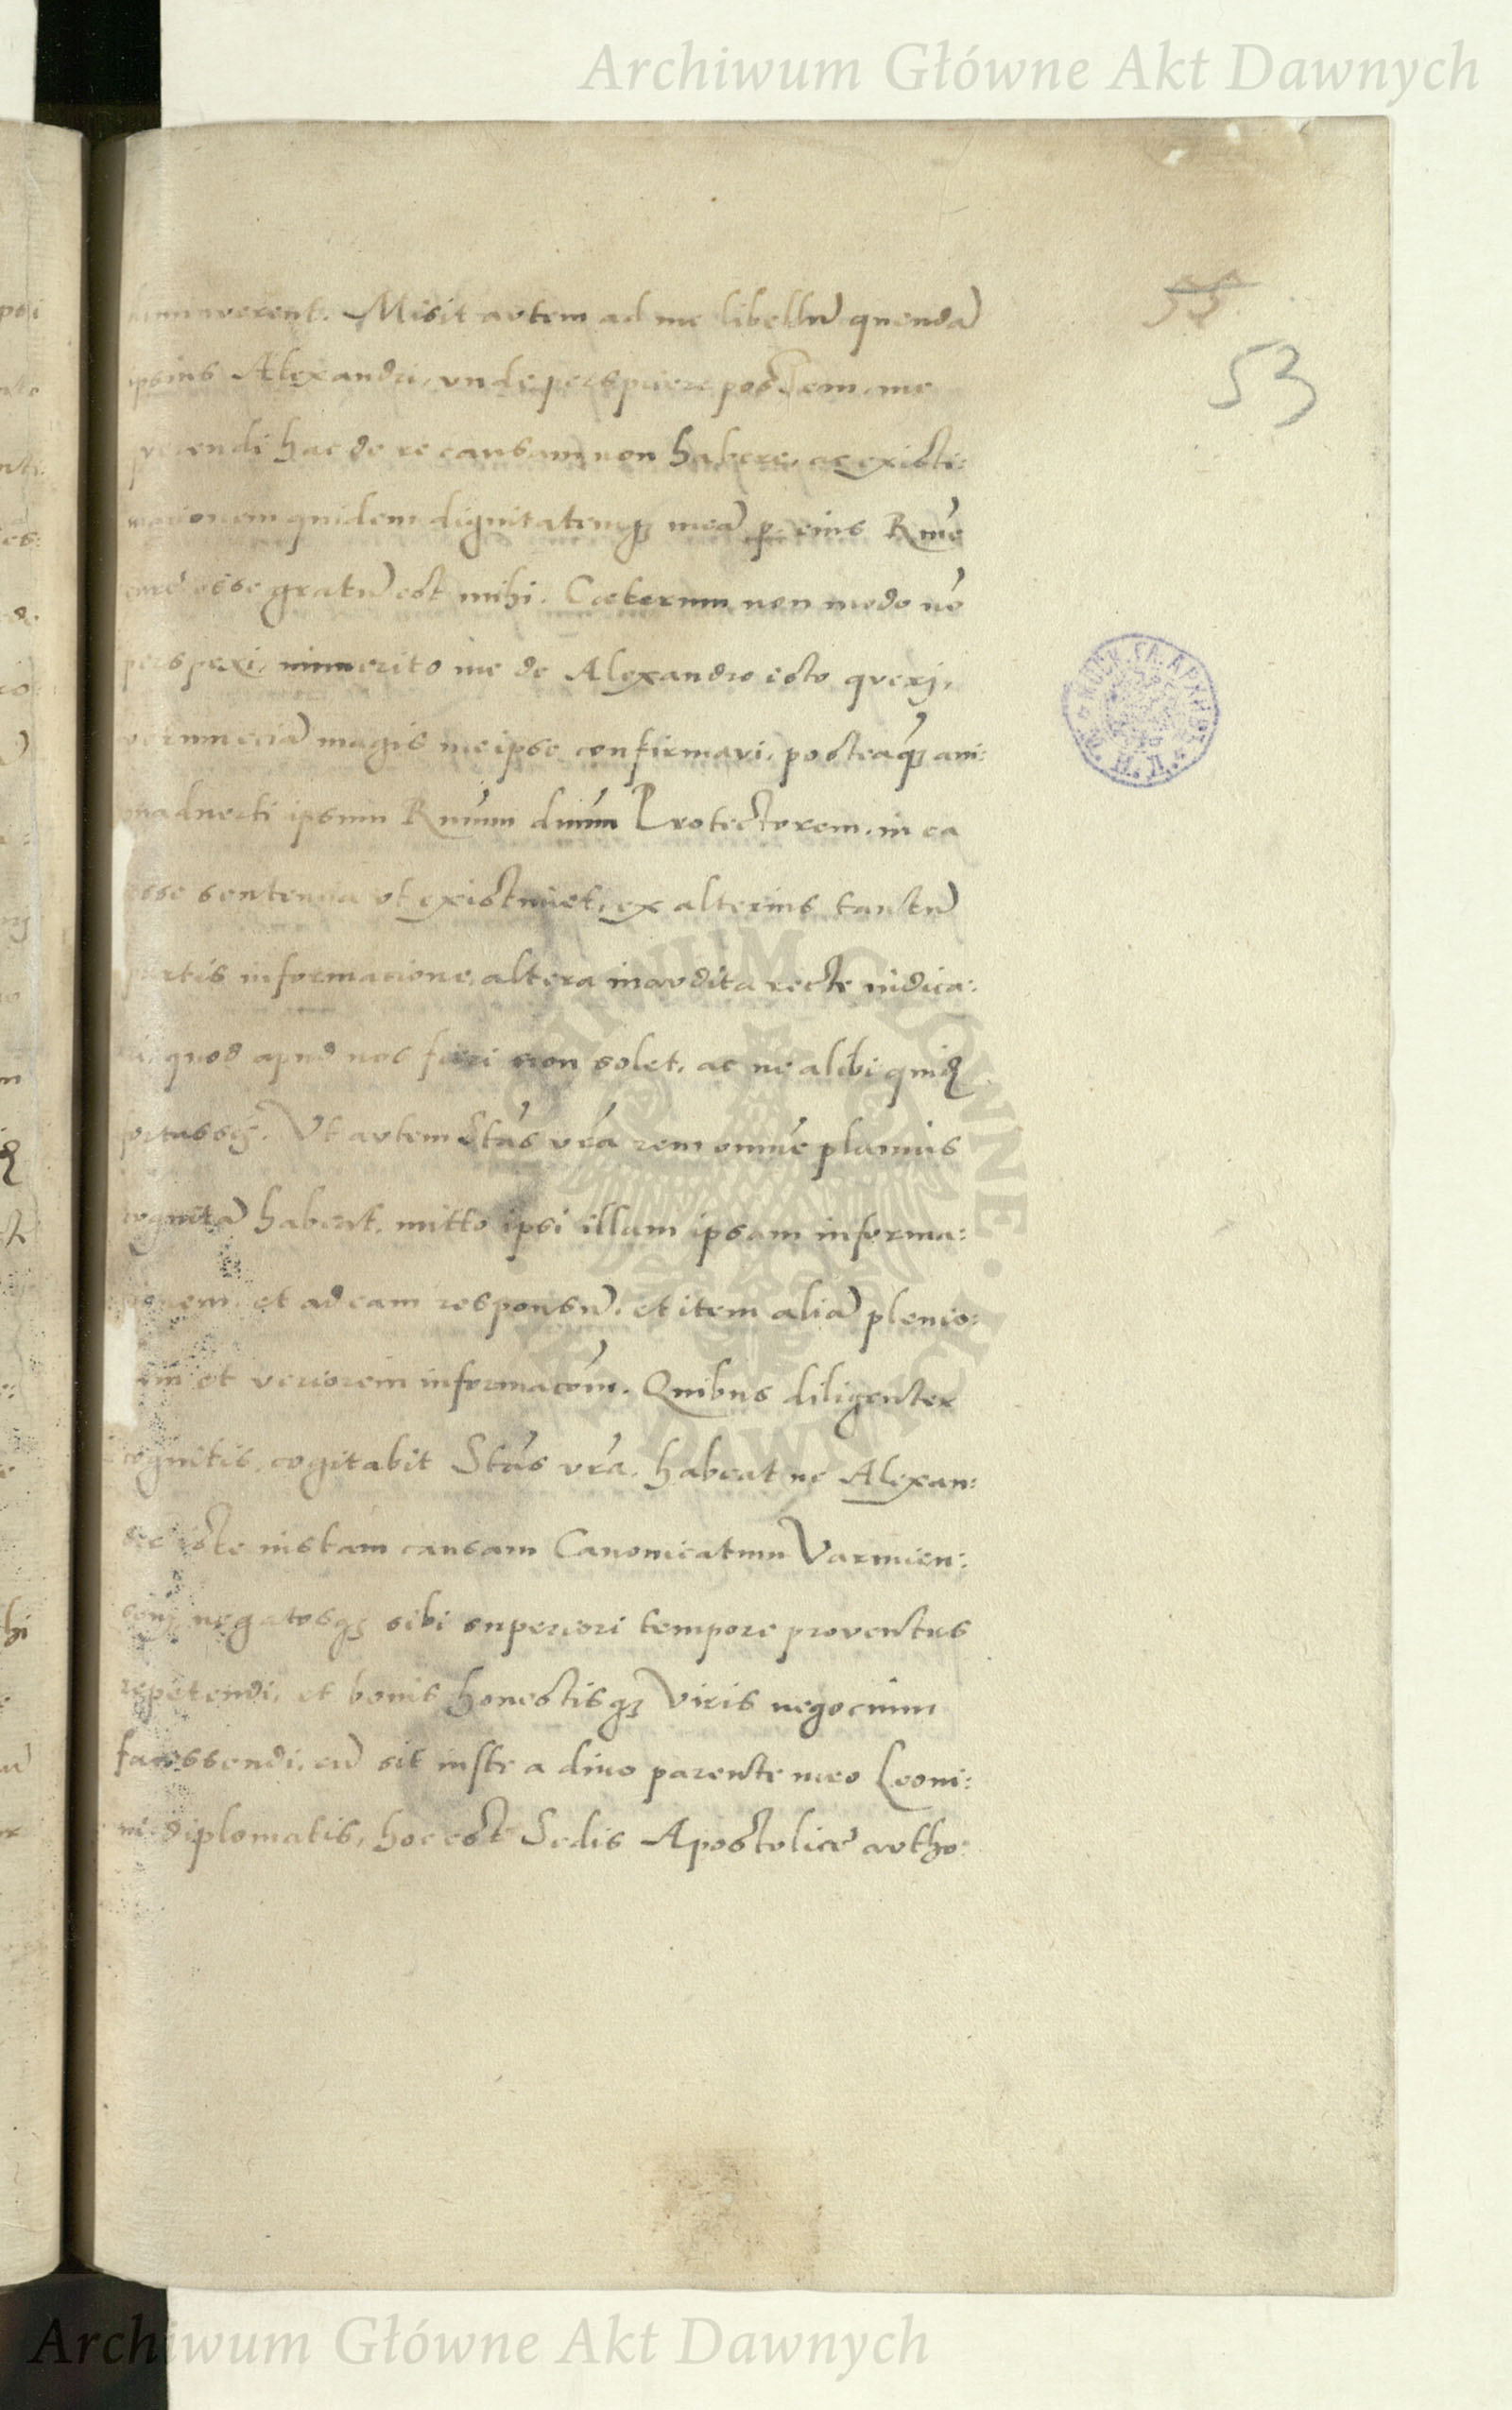 Archiwum Główne Akt Dawnych
55
53
Misit autem ad me libellũ quendã
ipsius Alexandri, unde perspicere possem, me
hac de re causam non habere, ac existi:
mationem quidem dignitatemq; meã p. eius Rme
esse gratũ est mihi. Cæterum non modo nõ
perspexi, immerito me de Alexandro isto querj,
verum eciã magis me ipse confirmavi, posteaq̃ ani:
madverti ipsum Rmum dnum Protectorem, in ea
esse sententia ut existimet, ex alterius tantũ
partis informacione, altera inaudita recte iudica:
ri, quod apud nos fieri non solet, ac ne alibi quidẽ
Ut autem Stas vra rem omnẽ planius
cognitã habeat, mitto ipsi illam ipsam informa:
cionem, et ad eam responsũ, et item aliã plenio:
rem et veriorem informacõem. Quibus diligenter
cognitis, cogitabit Stas vra, habeat ne Alexan:
der iste iustam causam Canonicatum Varmien:
sem, negatosq; sibi superiori tempore proventus
repetendi, et bonis honestisq; viris negocium
facessendi, cũ sit iuste a divo parente meo Leoni:
ni diplomatis, hoc est Sedis Apostolicę autho:
Archiwum Główne Akt Dawnych